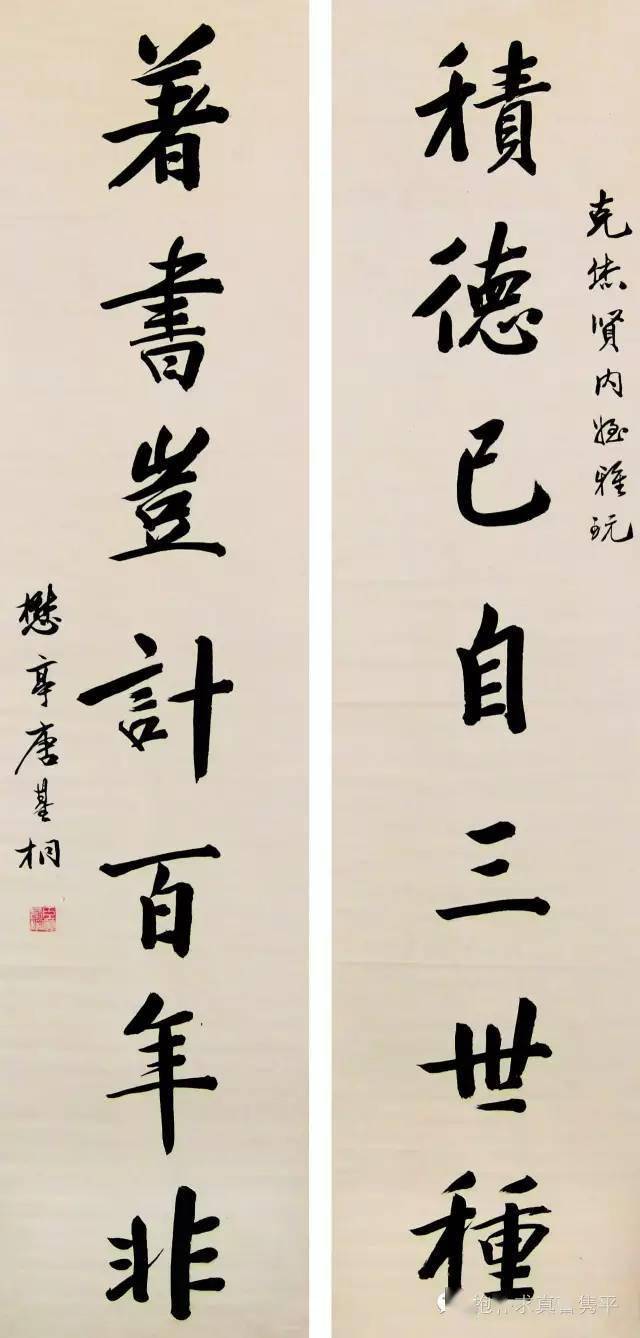 克杰贤内姪雅玩
積德已自三世種
著書豈計百年非
懋亭唐基桐